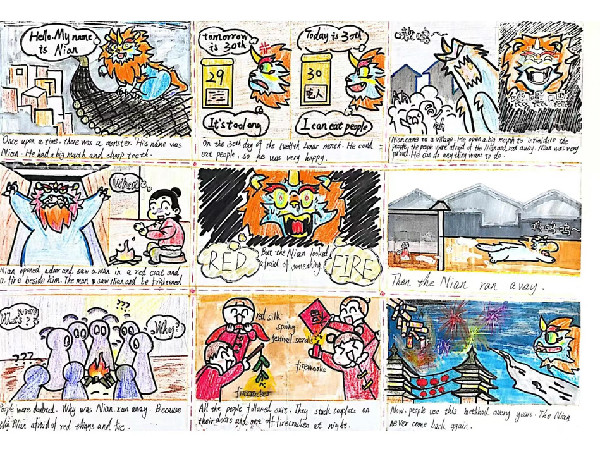 Hello. My name
is Nian
Once upon a time, there was a monster. His name was
Nian. He had a big mouth and sharp teeth.
tomorrow
is 30th
29
It's too long
Today is 30th
30
I can eat people
On the 30th day of the twelfth lunar month. He could
eat people, so he was very happy.
Nian came to a village. He open a big mouth to intimidate the
people. The people were afraid of the Nian and ran away. Nian was very
proud. He can do anything want to do.
Nian opened a door and saw a man in a red coat and
a fire beside him. The man saw Nian and be frightened
RED
But the Nian looked
afraid of something
FIRE
Then the Nian ran away.
???
Why?
???
People were puzzled. Why was Nian ran away. Because
the Nian afraid of red things and fire.
red silk
spring
festival scrolls
firecracker
fireworks
All the people followed ours. They stuck couplets on
their doors and set off firecrackers at night.
Now, people use this method every years. The Nian
never come back again.